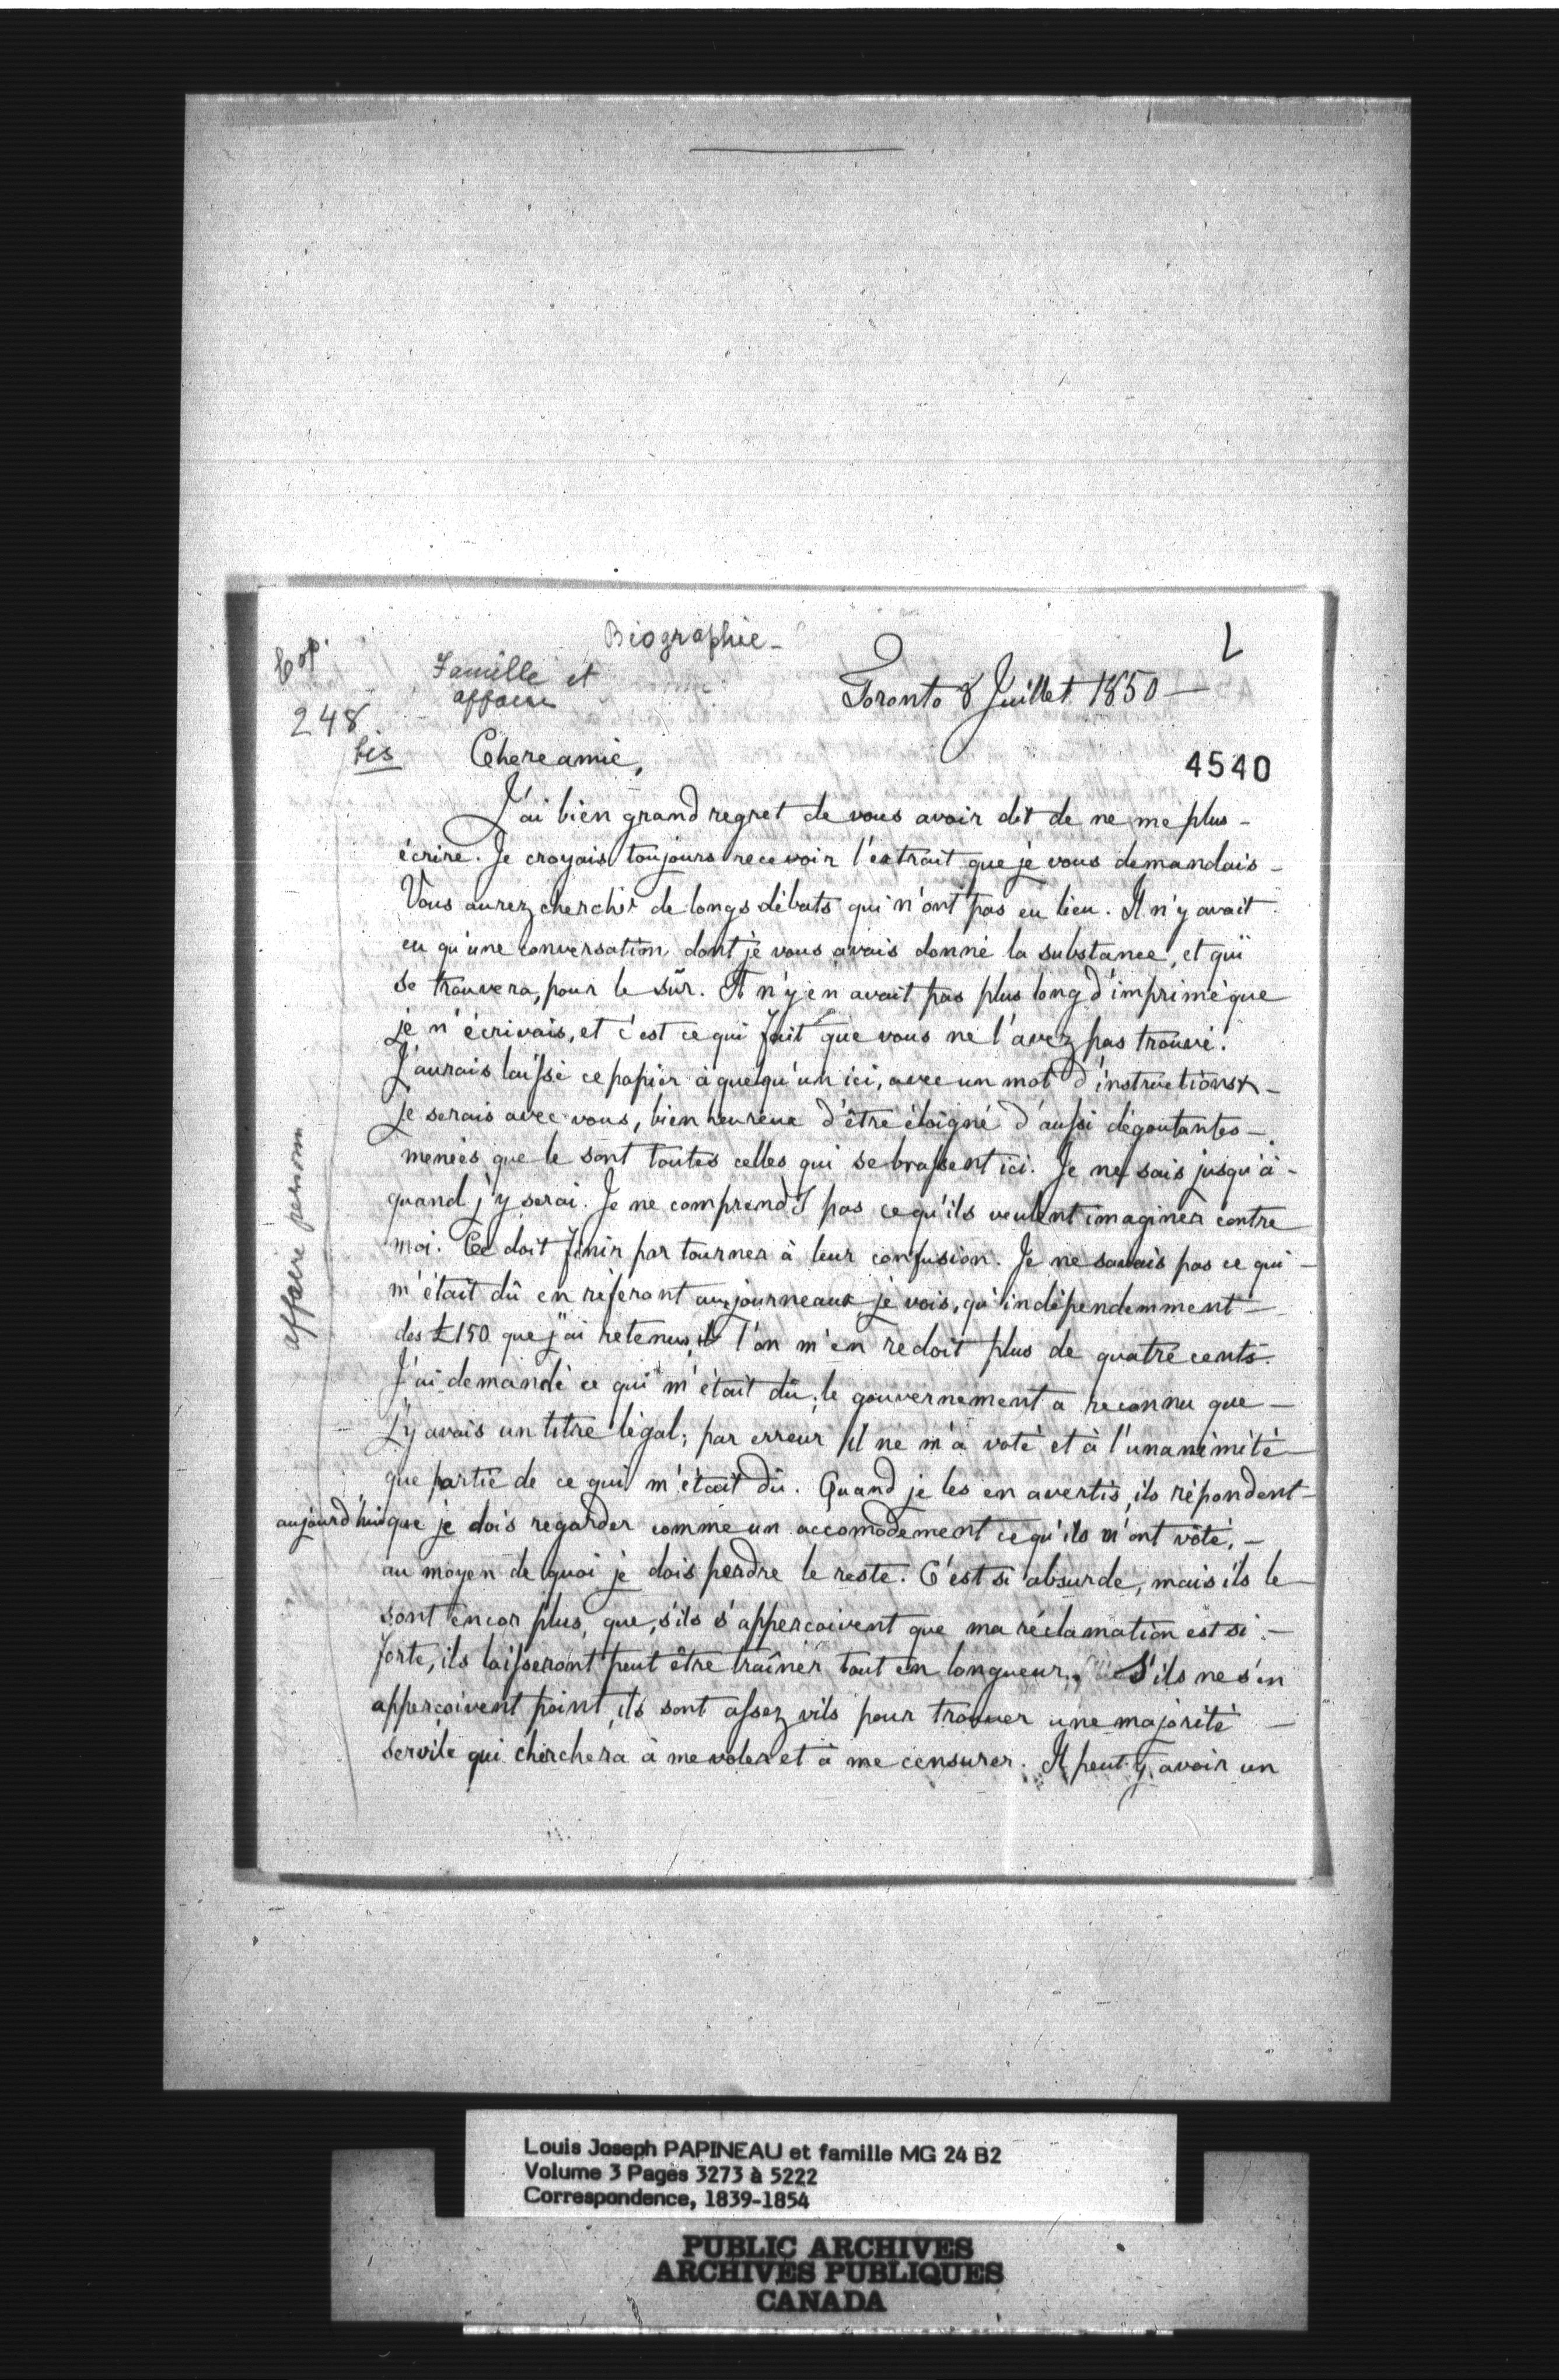 Biographie -
L
Cop.
Famille et
affaire
Toronto 8 Juillet 1850 —
248
bis
Chere amie,
4540
J'ai bien grand regret de vous avoir dit de ne me plus -
écrire. Je croyais toujours recevoir l'extrait que je vous demandais -
Vous aurez chercher de longs débats qui n'ont pas eu lieu. Il n'y avait
eu qu'une conversation dont je vous avais donné la substance, et qui
se trouvera, pour le sûr. Il n'y en avait pas plus long d'imprimé que
je n'écrivais, et c'est ce qui fait que vous ne l'avez pas trouvé.
J'aurais laissé ce papier à quelqu'un ici, avec un mot d'instructions -
je serais avec vous, bien heureux d'être éloigné d'aussi dégoutantes -
menées que le sont toutes celles qui se brassent ici. Je ne sais jusqu'à -
quand j'y serai. Je ne comprends pas ce qu'ils veulent imaginer contre
moi. Ce doit finir par tourner à leur confusion. Je ne savais pas ce qui -
m'était dû en référant aux journeaux je vois, qu'indépendemment -
des £150 que j'ai retenus, l'on m'en redoit plus de quatre cents.
J'ai demandé ce qui m'était dû; le gouvernement a reconnu que -
J'y avais un titre légal; par erreur il ne m'a voté et à l'unanimité
que partie de ce qui m'était dû. Quand je les en avertis, ils répondent -
aujourd'hui que je dois regarder comme un accomodement ce qu'ils m'ont voté, -
au moyen de quoi je dois perdre le reste. C'est si absurde, mais ils le
sont encor plus, que, s'ils s'apperçoivent que ma réclamation est si -
forte, ils laisseront peut être traîner tout en longueur, S'ils ne s'en
apperçoivent point, ils sont assez vils pour trouver une majorité -
servile qui cherchera à me voler et à me censurer. Il peut y avoir un
affaire personn.
Louis Joseph PAPINEAU et famille MG 24 B2
Volume 3 Pages 3273 à 5222
Correspondence, 1839-1854
PUBLIC ARCHIVES
ARCHIVES PUBLIQUES
CANADA